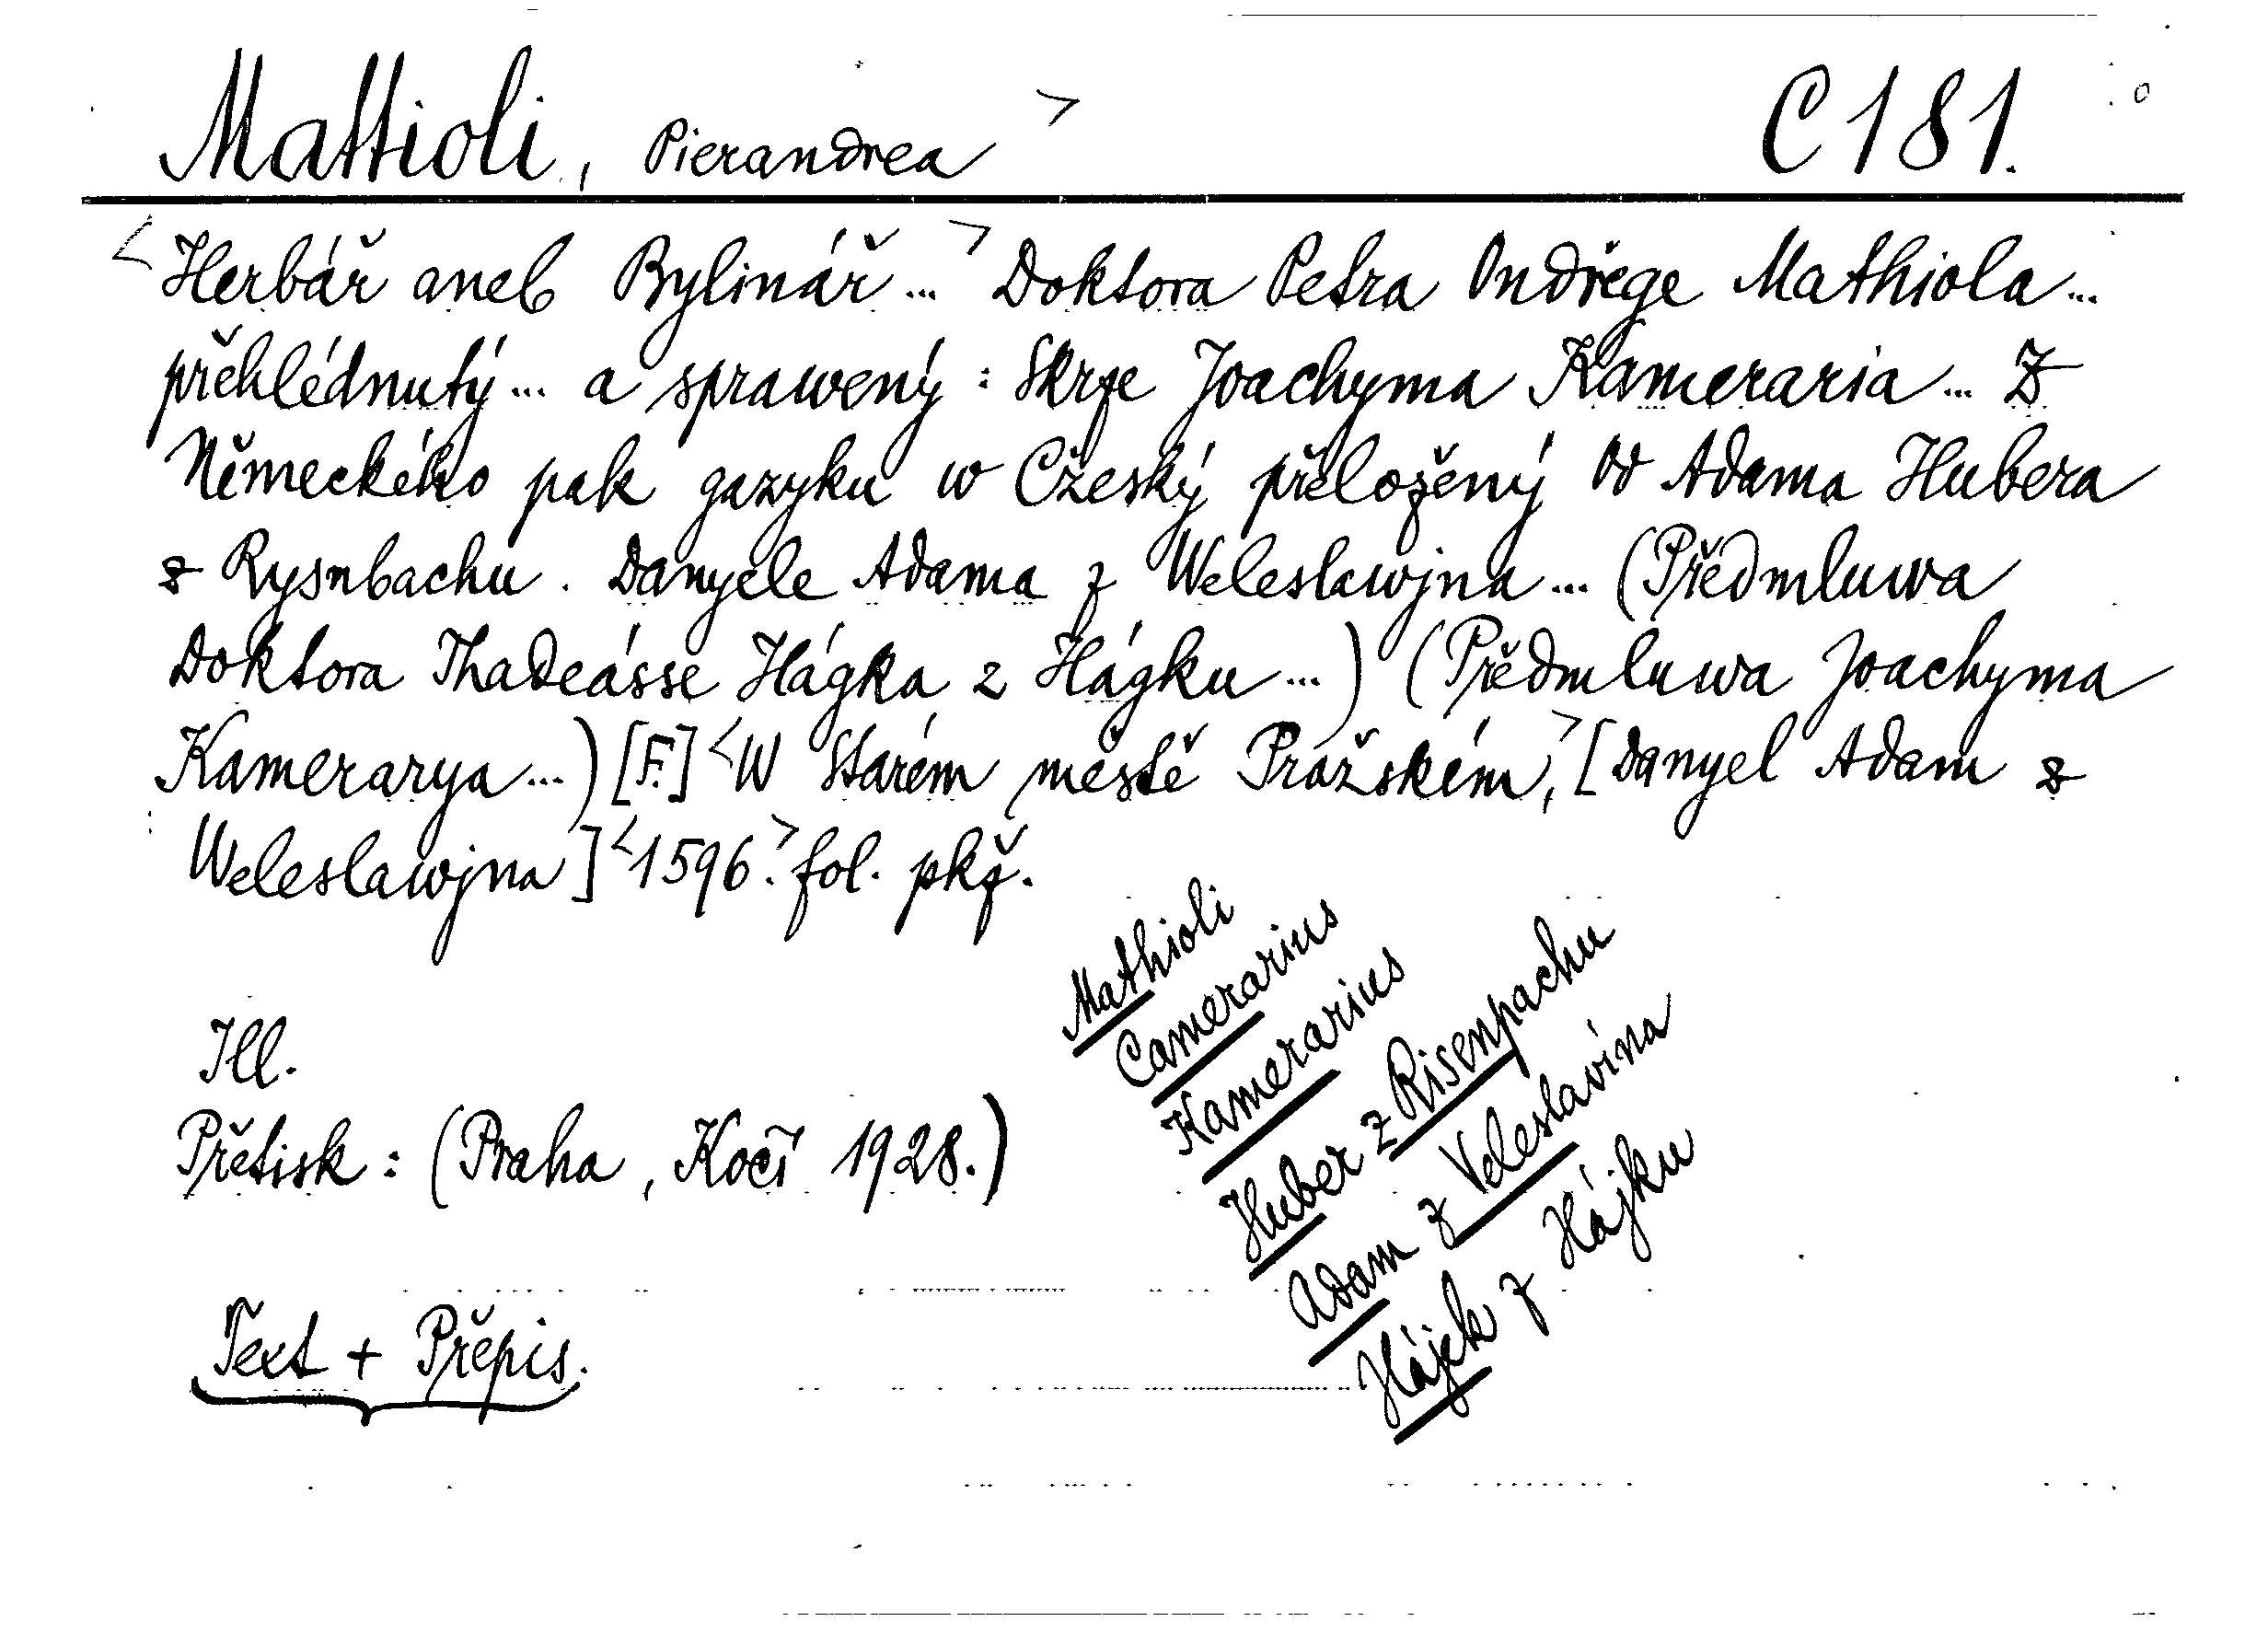 Mattioli, Pierandrea > C 181.
<Herbář aneb Bylinář...> Doktora Petra Ondřege Mathiola...
přehlédnutý... a sprawený: Skrze Joachyma Kameraria... Z
Německého pak gazyku w Cžeský přeložený Od Adama Hubera
z Rysnbachu. Danyele Adama z Weleslawjna... (Předmluwa
Doktora Thadeásse Hágka z Hágku...) (Předmluwa Joachyma
Kamerarya...) [F.] <W Starém městě Pražském,> [Danyel Adam z
Weleslawjna] <1596.> fol. pkž.
Mathioli
Camerarius
Kamerarius
Huber z Risenpachu
Adam z Veleslavína
Hájek z Hájku
Ill.
Přetisk: (Praha, Kočí 1928.)
Text + Přepis.